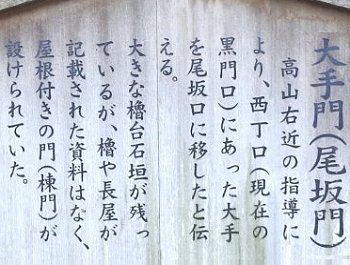 大手門(尾坂門)
高山右近の指導に
より、西丁口(現在の
黒門口)にあった大手
を尾坂口に移したと伝
える。
大きな櫓台石垣が残っ
ているが、櫓や長屋が
記載された資料はなく、
屋根付きの門(棟門)が
設けられていた。